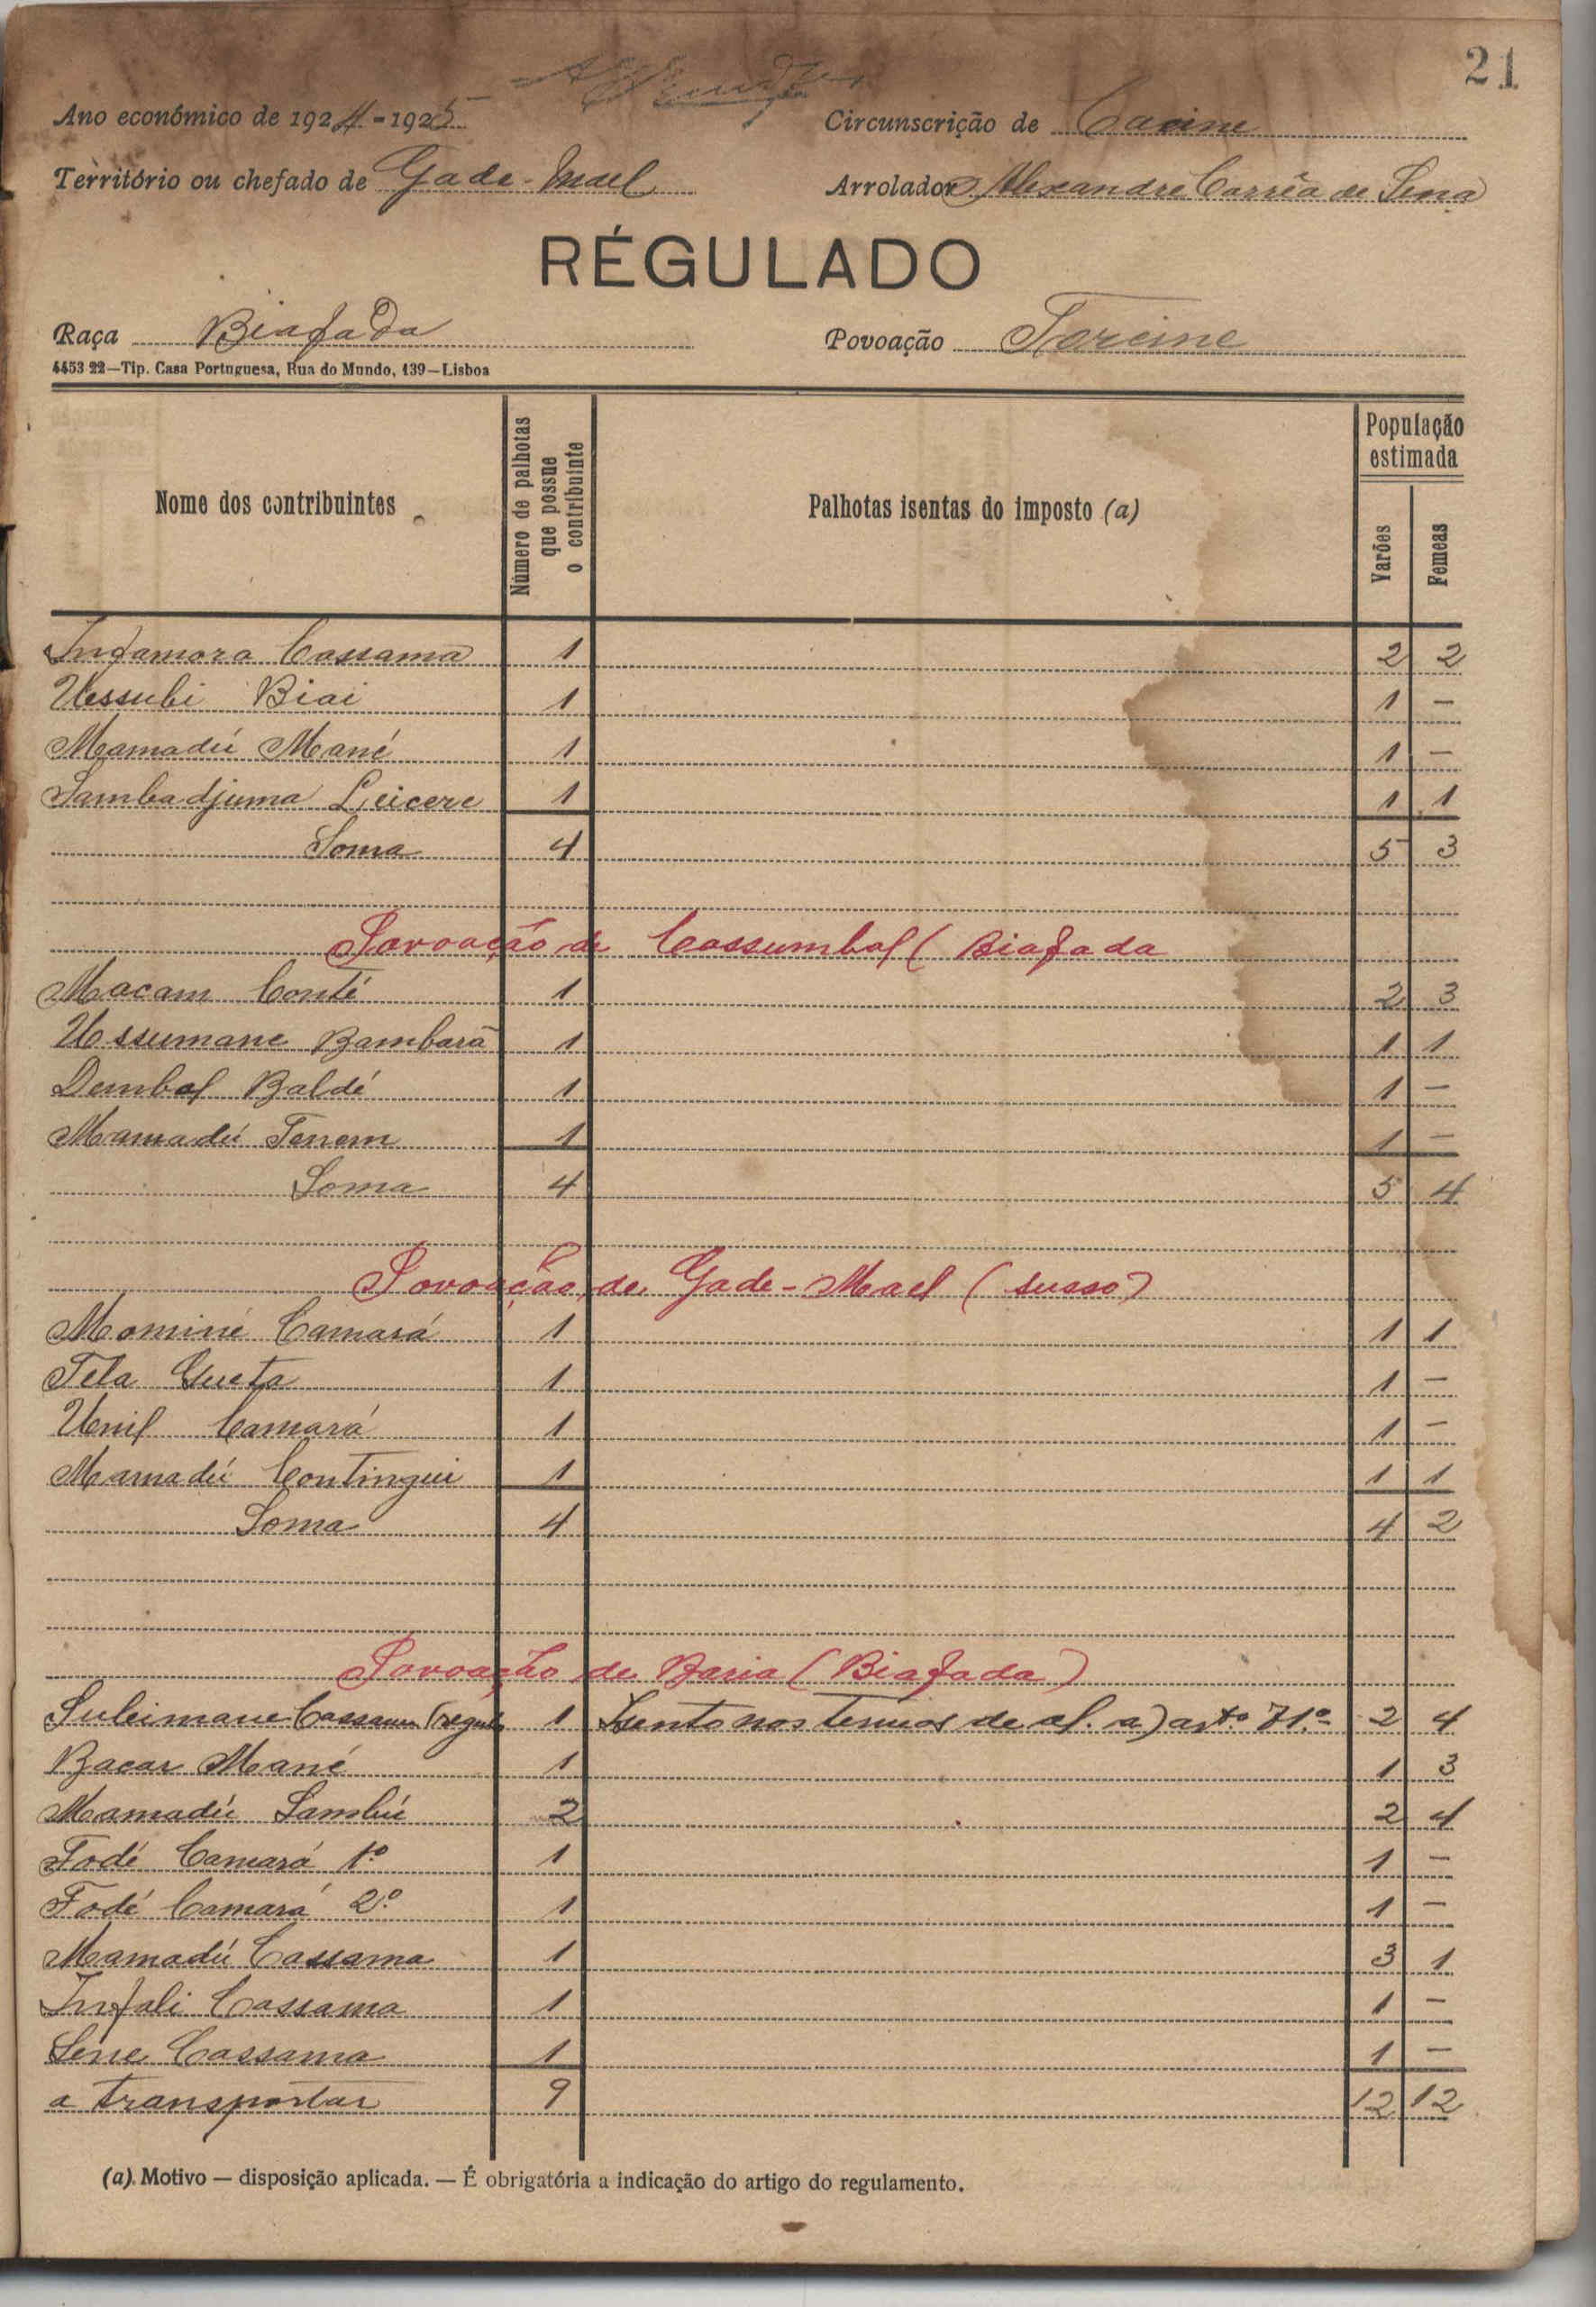 21
Ano económico de 1924-1925
Circunscrição de Cacine
Território ou chefado de Gade-Mael
Arrolador Alexandre Corrêa de Sena
RÉGULADO
Raça Biafada
Povoação
4453 22—Tip. Casa Portuguesa, Rua do Mundo, 139—Lisboa
Nome dos contribuintes
Número de palhotas que possue o contribuinte
Palhotas isentas do imposto (a)
População estimada
Varões
Femeas
Infamora Cassama 1 2 2
Ussubi Biai 1 1 —
Mamadú Mané 1 1 —
Sambadjuma 1 1 1
Soma 4 5 3
Povoação de Cassumbal (Biafada
Macam Conté 1 2 3
Ussumane Bambará 1 1 1
Dembal Baldé 1 1 —
Mamadú Tenem 1 1 —
Soma 4 5 4
Povoação de Gade-Mael (susso)
Mominé Camará 1 1 1
Tela Gueta 1 1 —
Unil Camará 1 1 —
Mamadú Contingui 1 1 1
Soma 4 4 2
Povoação de Baria (Biafada)
Suleimane Cassama (regulo 1 Isento nos termos de al. a) artº 71.º 2 4
Bacar Mané 1 1 3
Mamadú Sambú 2 2 4
Fodé Camará 1º 1 1 —
Fodé Camará 2º 1 1 —
Mamadú Cassama 1 3 1
Infali Cassama 1 1 —
Sene Cassama 1 1 —
a transportar 9 12 12
(a) Motivo — disposição aplicada. — É obrigatória a indicação do artigo do regulamento.